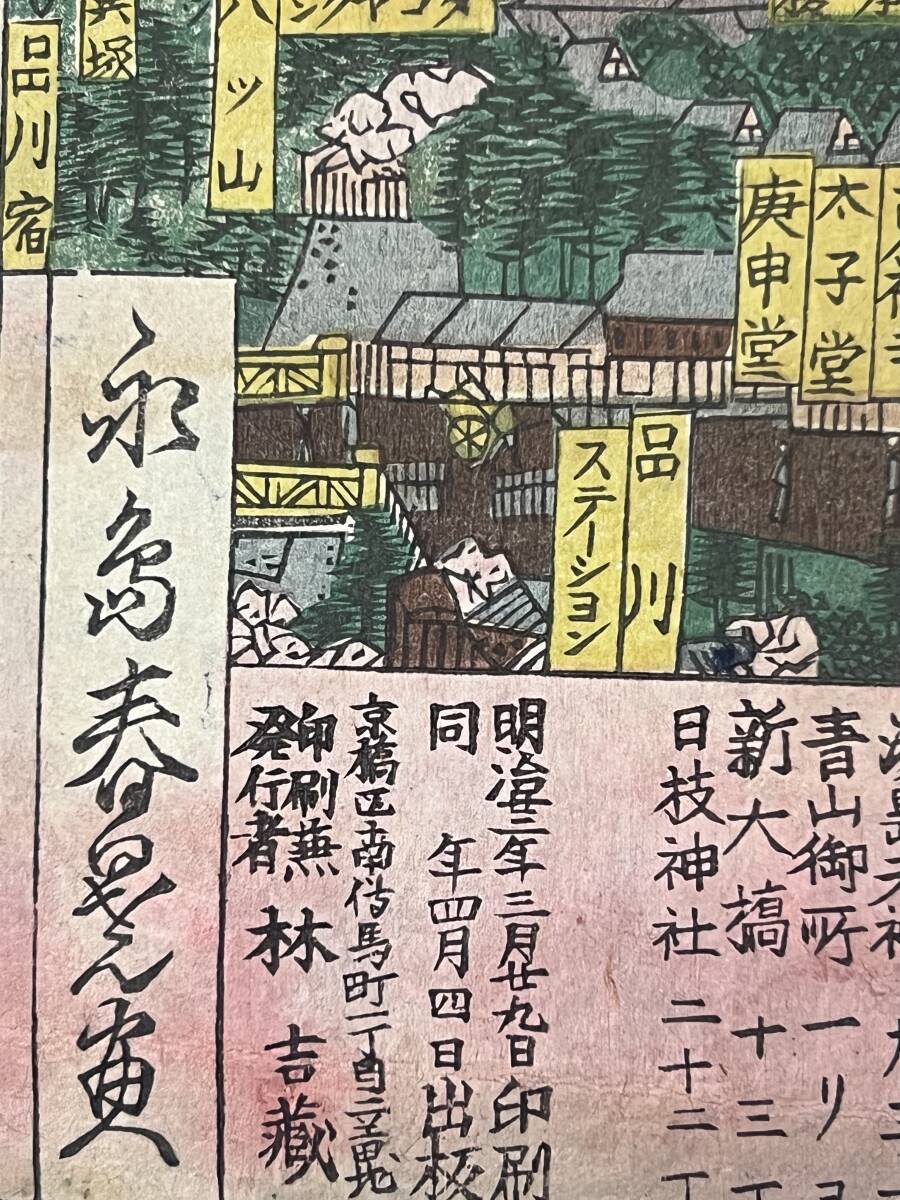 太子堂
庚申堂
品川
ステーション
八ツ山
品川宿
青山御所 一リ
新大橋 十三
日枝神社 二十二丁
明治卅三年三月廿九日印刷
同 年四月四日出板
京橋区南伝馬町一丁目
印刷兼
発行者 林吉蔵
永島春暁画